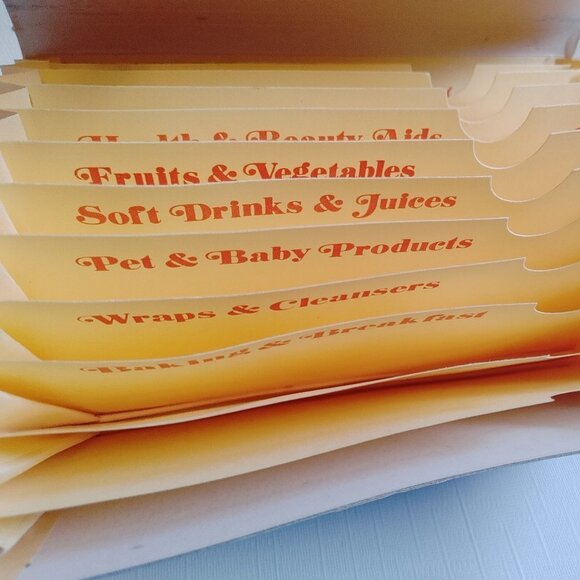 Health & Beauty Aids
Fruits & Vegetables
Soft Drinks & Juices
Pet & Baby Products
Wraps & Cleansers
Baking & Breakfast